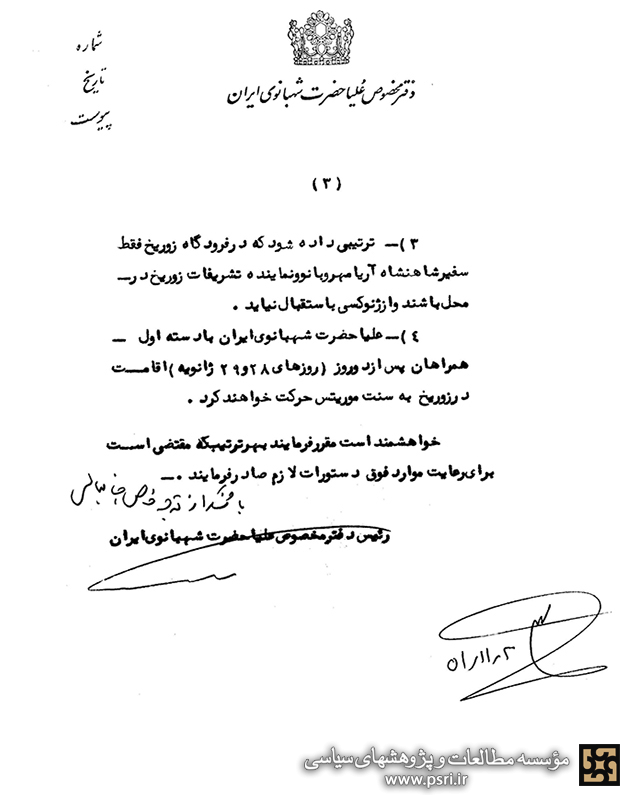 دفتر مخصوص علیاحضرت شهبانوی ایران
شماره
تاریخ
پیوست
(٣)
٣)ــ ترتیبی داده شود که در فرودگاه زوریخ فقط
سفیر شاهنشاه آریامهر و بانو و نماینده تشریفات زوریخ در ــ
محل باشند و از ژنو کسی باستقبال نیاید .
٤)ــ علیاحضرت شهبانوی ایران با دسته اول ــ
همراهان پس از دو روز (روزهای ٢٨ و ٢٩ ژانویه) اقامت
در زوریخ به سنت موریتس حرکت خواهند کرد .
خواهشمند است مقرر فرمایند بهر ترتیبکه مقتضی است
برای رعایت موارد فوق دستورات لازم صادر فرمایند .ــ
با تشکر از توجه خاص جنابعالی
رئیس دفتر مخصوص علیاحضرت شهبانوی ایران
مؤسسه مطالعات و پژوهشهای سیاسی
www.psri.ir